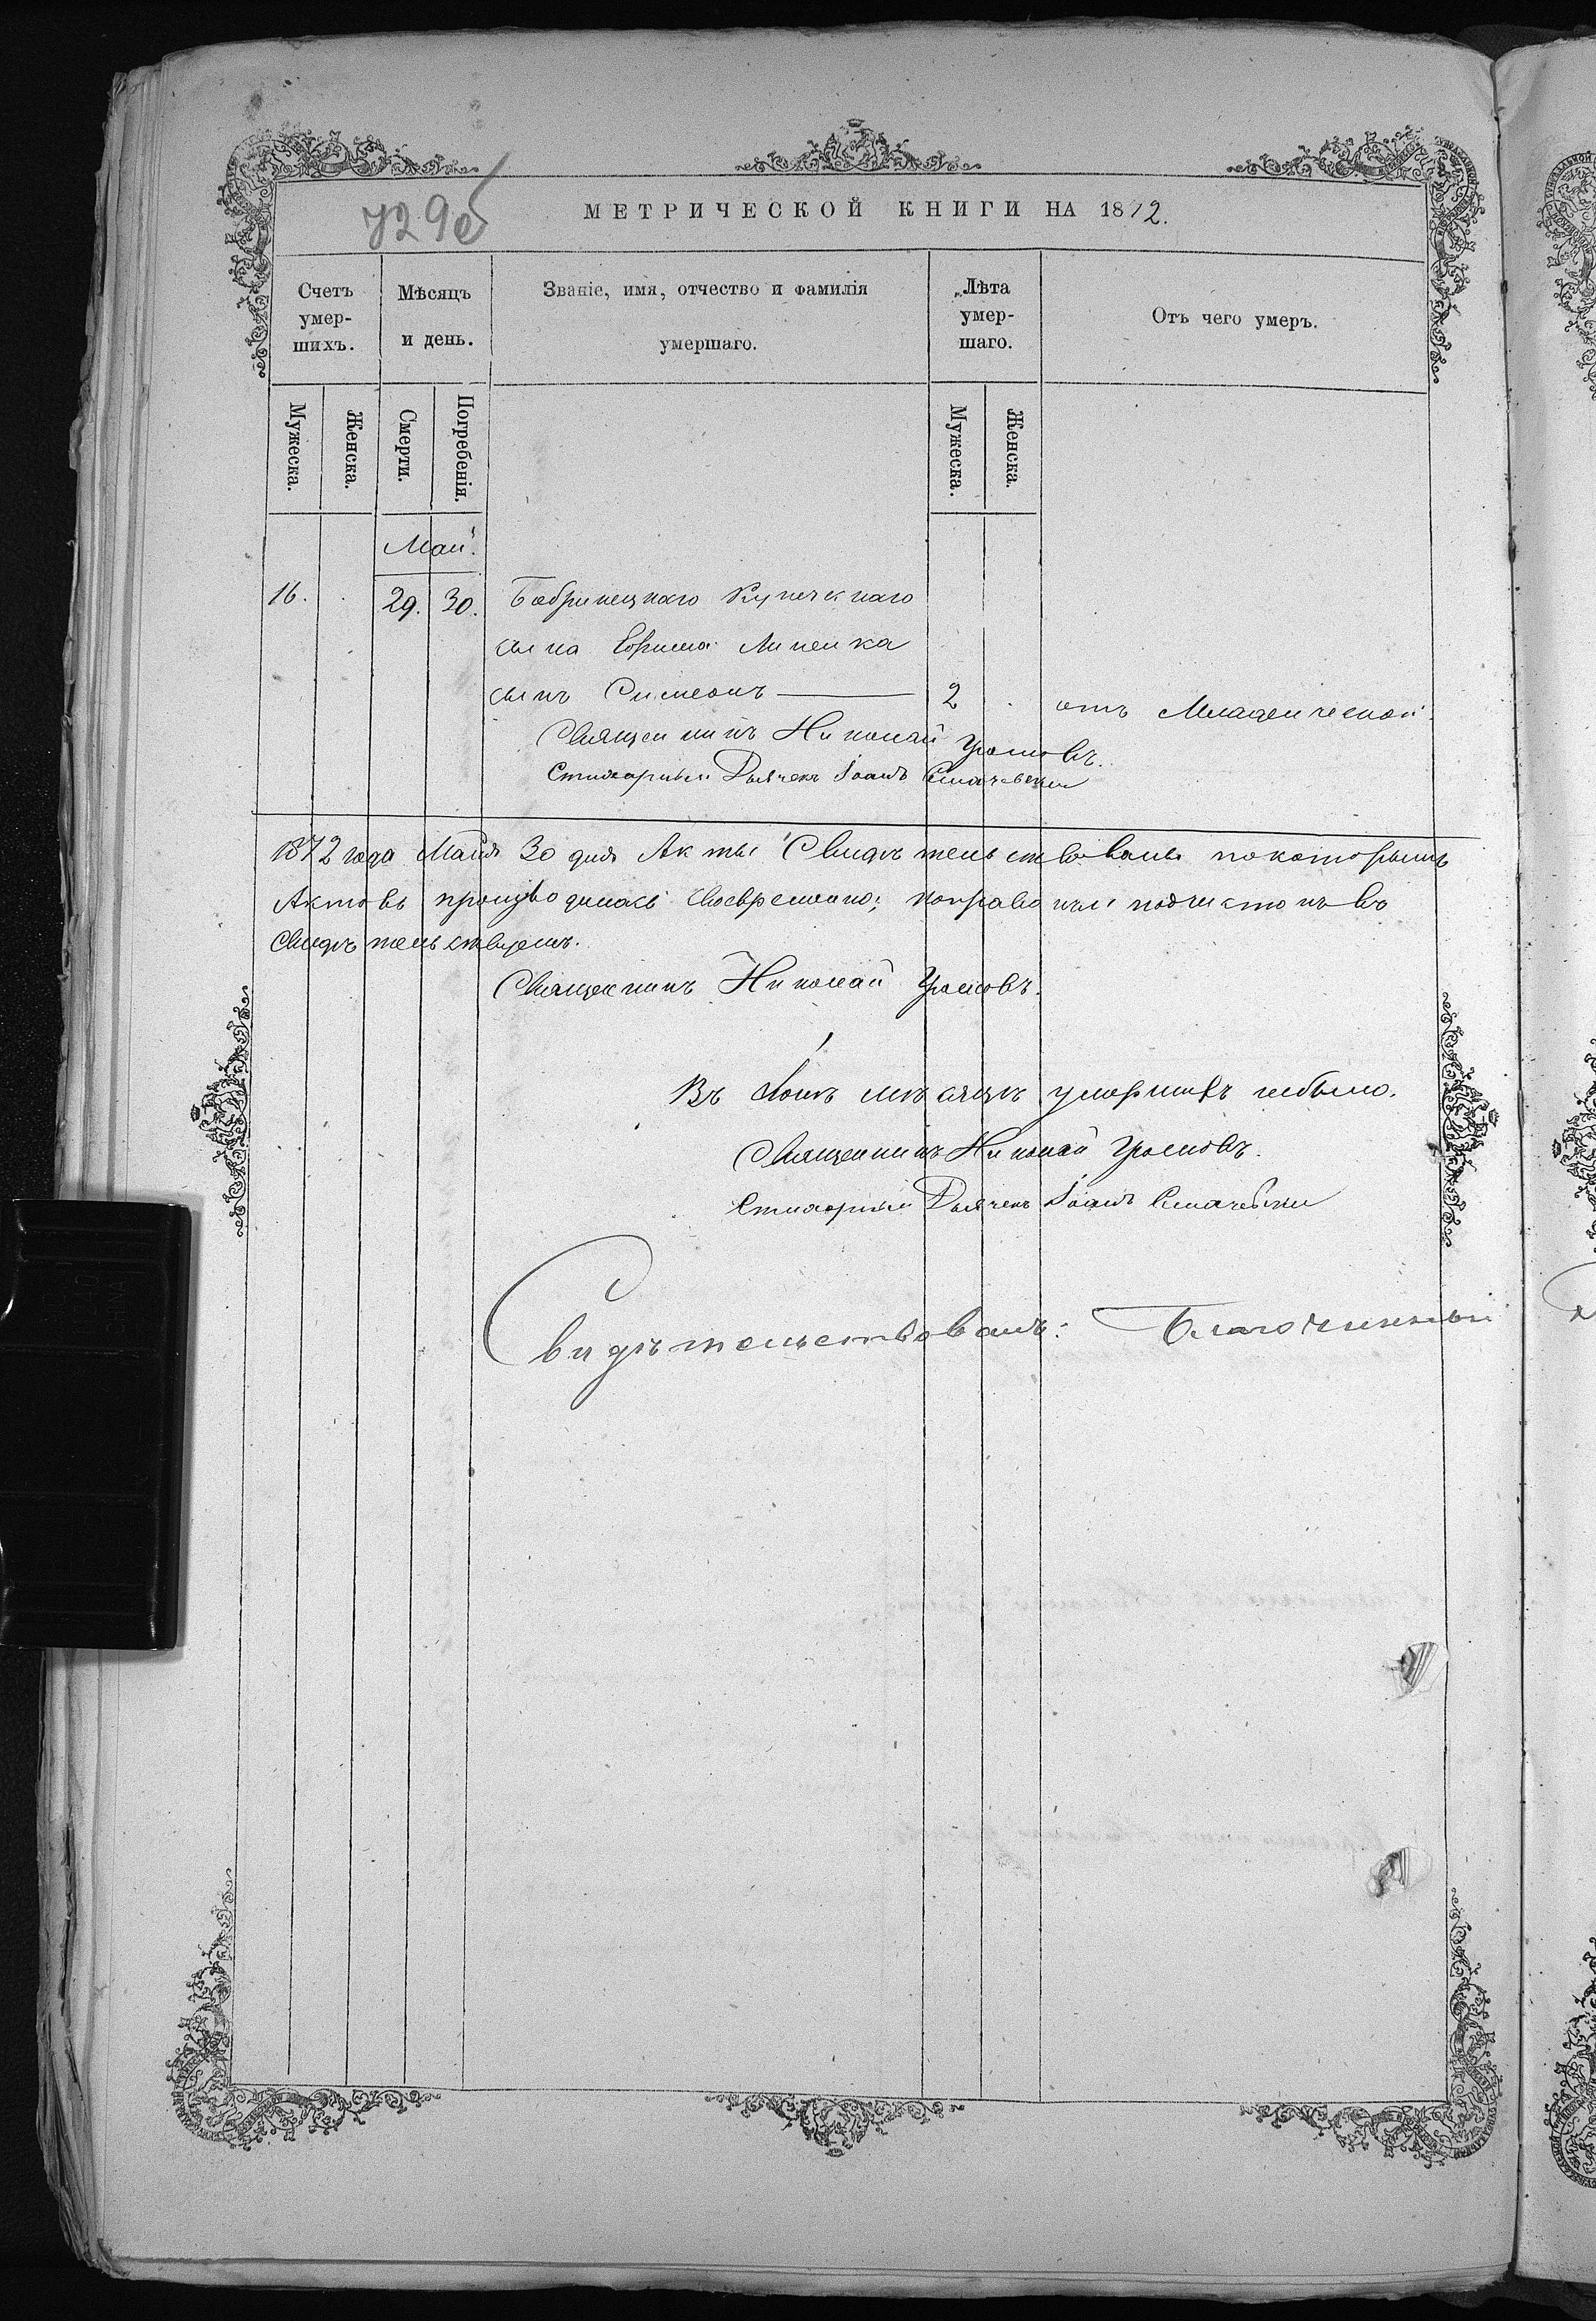 729об
МЕТРИЧЕСКОЙ КНИГИ НА 1872.
Счетъ умер-шихъ.
Мѣсяцъ и день.
Званіе, имя, отчество и фамилія умершаго.
Лѣта умер-шаго.
Отъ чего умеръ.
Мужеска.
Женска.
Смерти.
Погребенія.
Мужеска.
Женска.
Май.
16. 29. 30. Бобринецкаго Купечкаго
сына Ефима Липенка
сынъ Симеонъ 2 отъ Младенческой.
Священникъ Николай Громовъ.
Стихарный Дьячекъ Іоанъ
1872 года Майя 30 дня Акты Свидѣтельствованы покоторымъ
Актовъ производилась своевременно;
Свидѣтельствуемъ.
Священникъ Николай Громовъ.
Въ Іюнѣ мѣсяцѣ умершихъ небыло.
Священникъ Николай Громовъ.
Стихарный Дьячекъ Іоанъ
Свидѣтельствовалъ: Благочинный